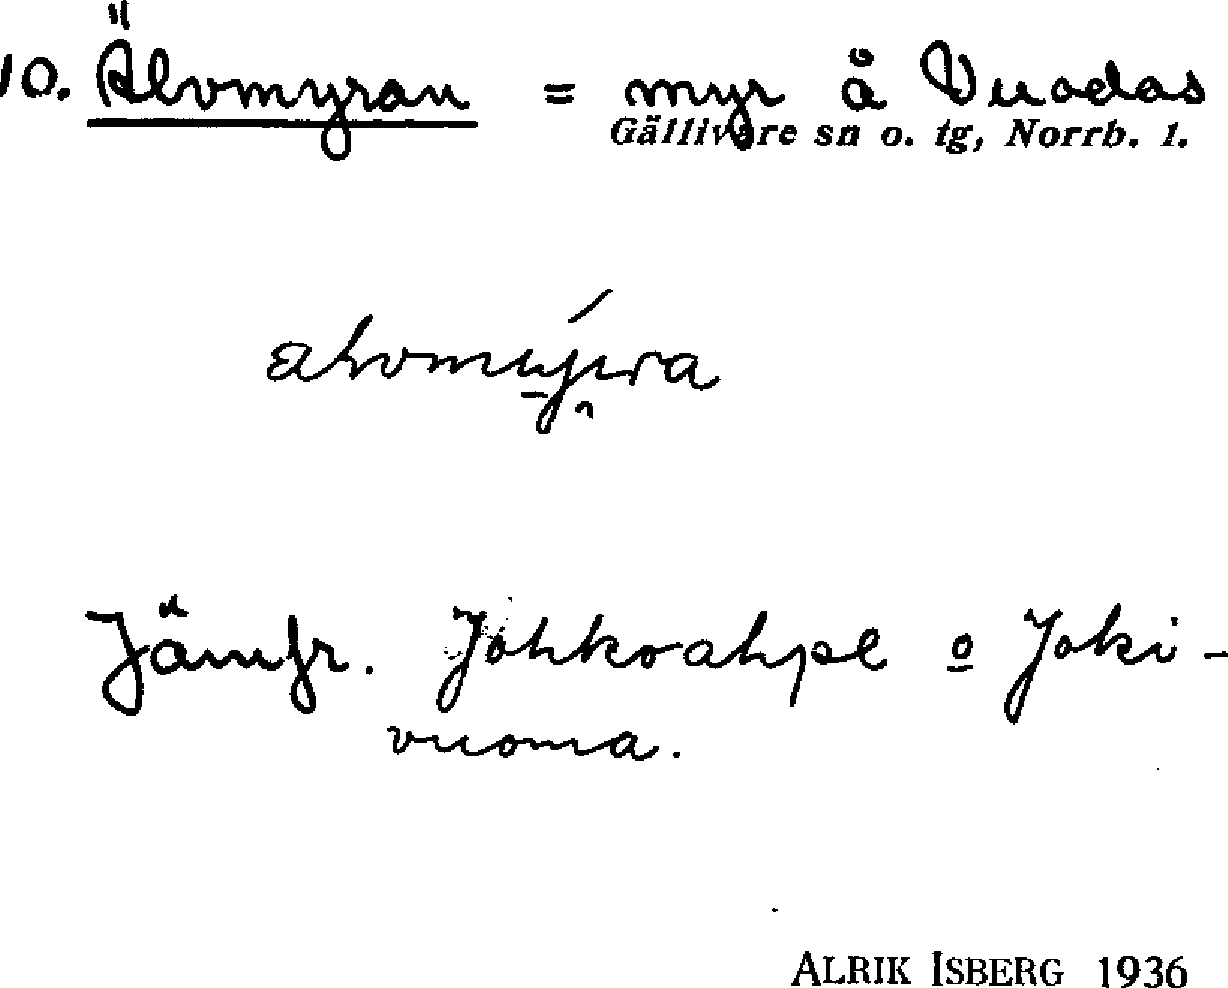 10. Älvmyran = myr å Vuodas
Gällivare sn o. tg, Norrb. l.
Jämfr. Johkoahpe o Joki-
vuoma.
ALRIK ISBERG 1936